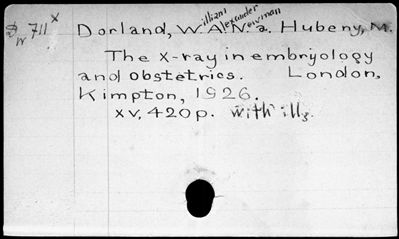 D W 711 x
Dorland, W.illiam A.lexander N.ewman a. Hubeny, M.
The X-ray in embryology
and obstetrics. London,
Kimpton, 1926.
XV, 420 p. with ills.